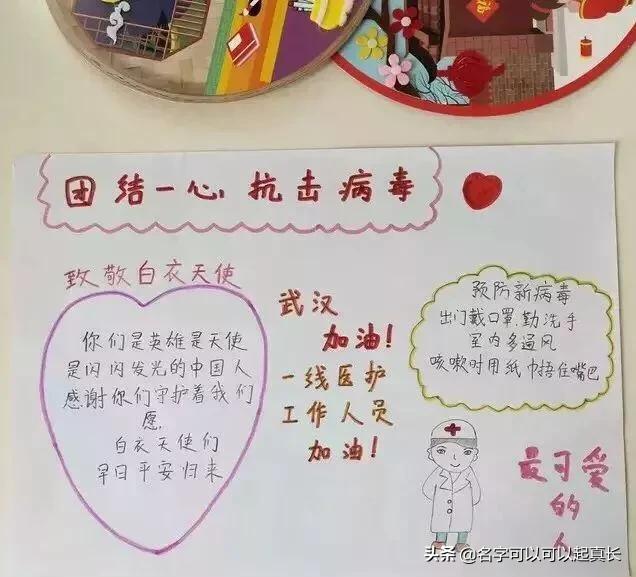 团结一心,抗击病毒
致敬白衣天使
你们是英雄是天使
是闪闪发光的中国人
感谢你们守护着我们
愿,
白衣天使们
早日平安归来
武汉
加油!
一线医护
工作人员
加油!
预防新病毒
出门戴口罩.勤洗手
室内多通风
咳嗽时用纸巾捂住嘴巴
最可爱
的
人
头条 @名字可以可以起真长